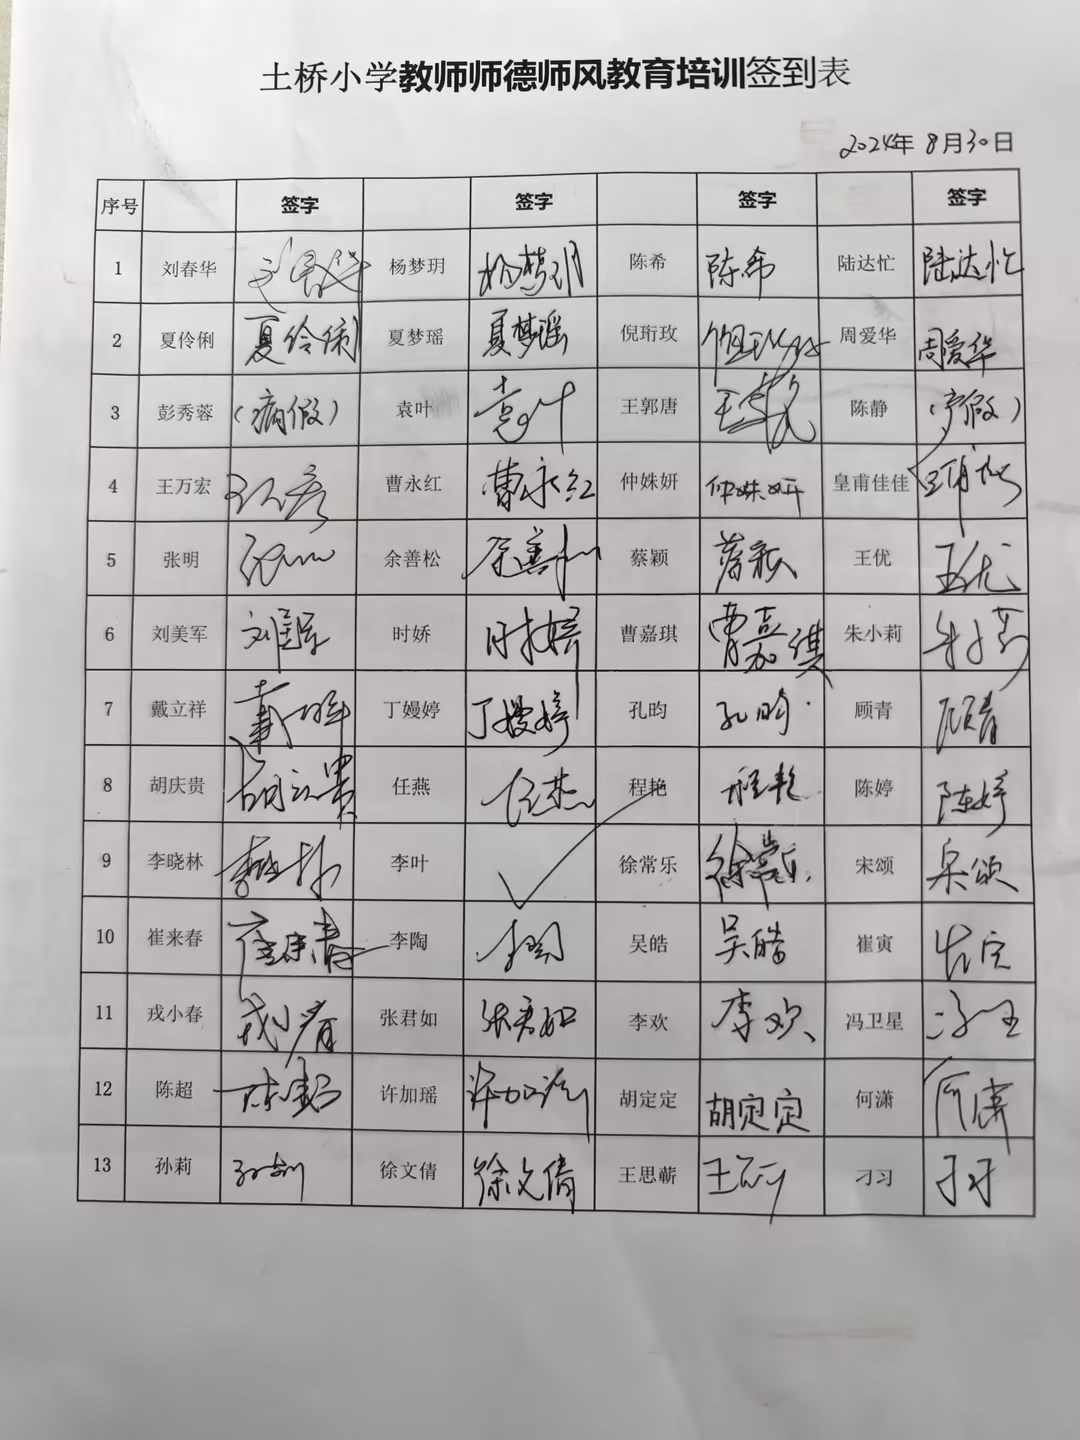 土桥小学教师师德师风教育培训签到表
2024年 8月30日
序号 签字 签字 签字 签字
1 刘春华 刘春华 杨梦玥 杨梦玥 陈希 陈希 陆达忙 陆达忙
2 夏伶俐 夏伶俐 夏梦瑶 夏梦瑶 倪珩玫 倪珩玫 周爱华 周爱华
3 彭秀蓉 （病假） 袁叶 袁叶 王郭唐 陈静 （产假）
4 王万宏 王万宏 曹永红 曹永红 仲姝妍 仲姝妍 皇甫佳佳
5 张明 张明 余善松 余善松 蔡颖 蔡颖 王优 王优
6 刘美军 刘美军 时娇 曹嘉琪 曹嘉琪 朱小莉 朱小莉
7 戴立祥 戴立祥 丁嫚婷 丁嫚婷 孔昀 孔昀 顾青 顾青
8 胡庆贵 胡庆贵 任燕 任燕 程艳 程艳 陈婷 陈婷
9 李晓林 李晓林 李叶 ✓ 徐常乐 徐常乐 宋颂 宋颂
10 崔来春 崔来春 李陶 李陶 吴皓 吴皓 崔寅 崔寅
11 戎小春 戎小春 张君如 张君如 李欢 李欢 冯卫星
12 陈超 陈超 许加瑶 许加瑶 胡定定 胡定定 何潇 何潇
13 孙莉 孙莉 徐文倩 徐文倩 王思蕲 刁习 刁习